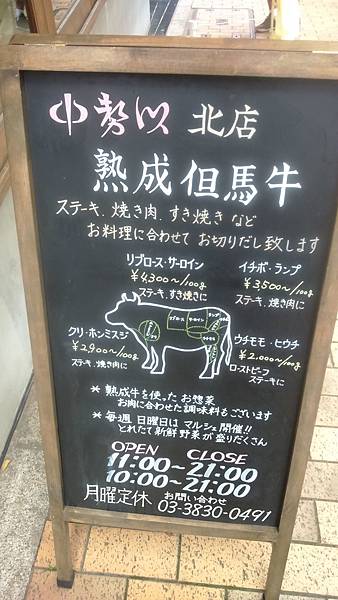 中勢以 北店
熟成但馬牛
ステーキ、焼き肉、すき焼き など
お料理に合わせて お切りだし致します
リブロース・サーロイン
¥4,300〜/100g
ステーキ、すき焼きに
イチボ・ランプ
¥3,500〜/100g
ステーキ、焼き肉に
リブロース サーロイン ランプ
クリ・ホンミスジ
¥2,900〜/100g
ステーキ、焼き肉に
ウチモモ・ヒウチ
¥2,000〜/100g
ローストビーフ
ステーキに
＊ 熟成牛を使った お惣菜
お肉に合わせた調味料もございます
＊ 毎週 日曜日は マルシェ開催!!
とれたて新鮮野菜が盛りだくさん
OPEN CLOSE
11:00〜21:00
10:00〜21:00
月曜定休 お問い合わせ
03-3830-0491